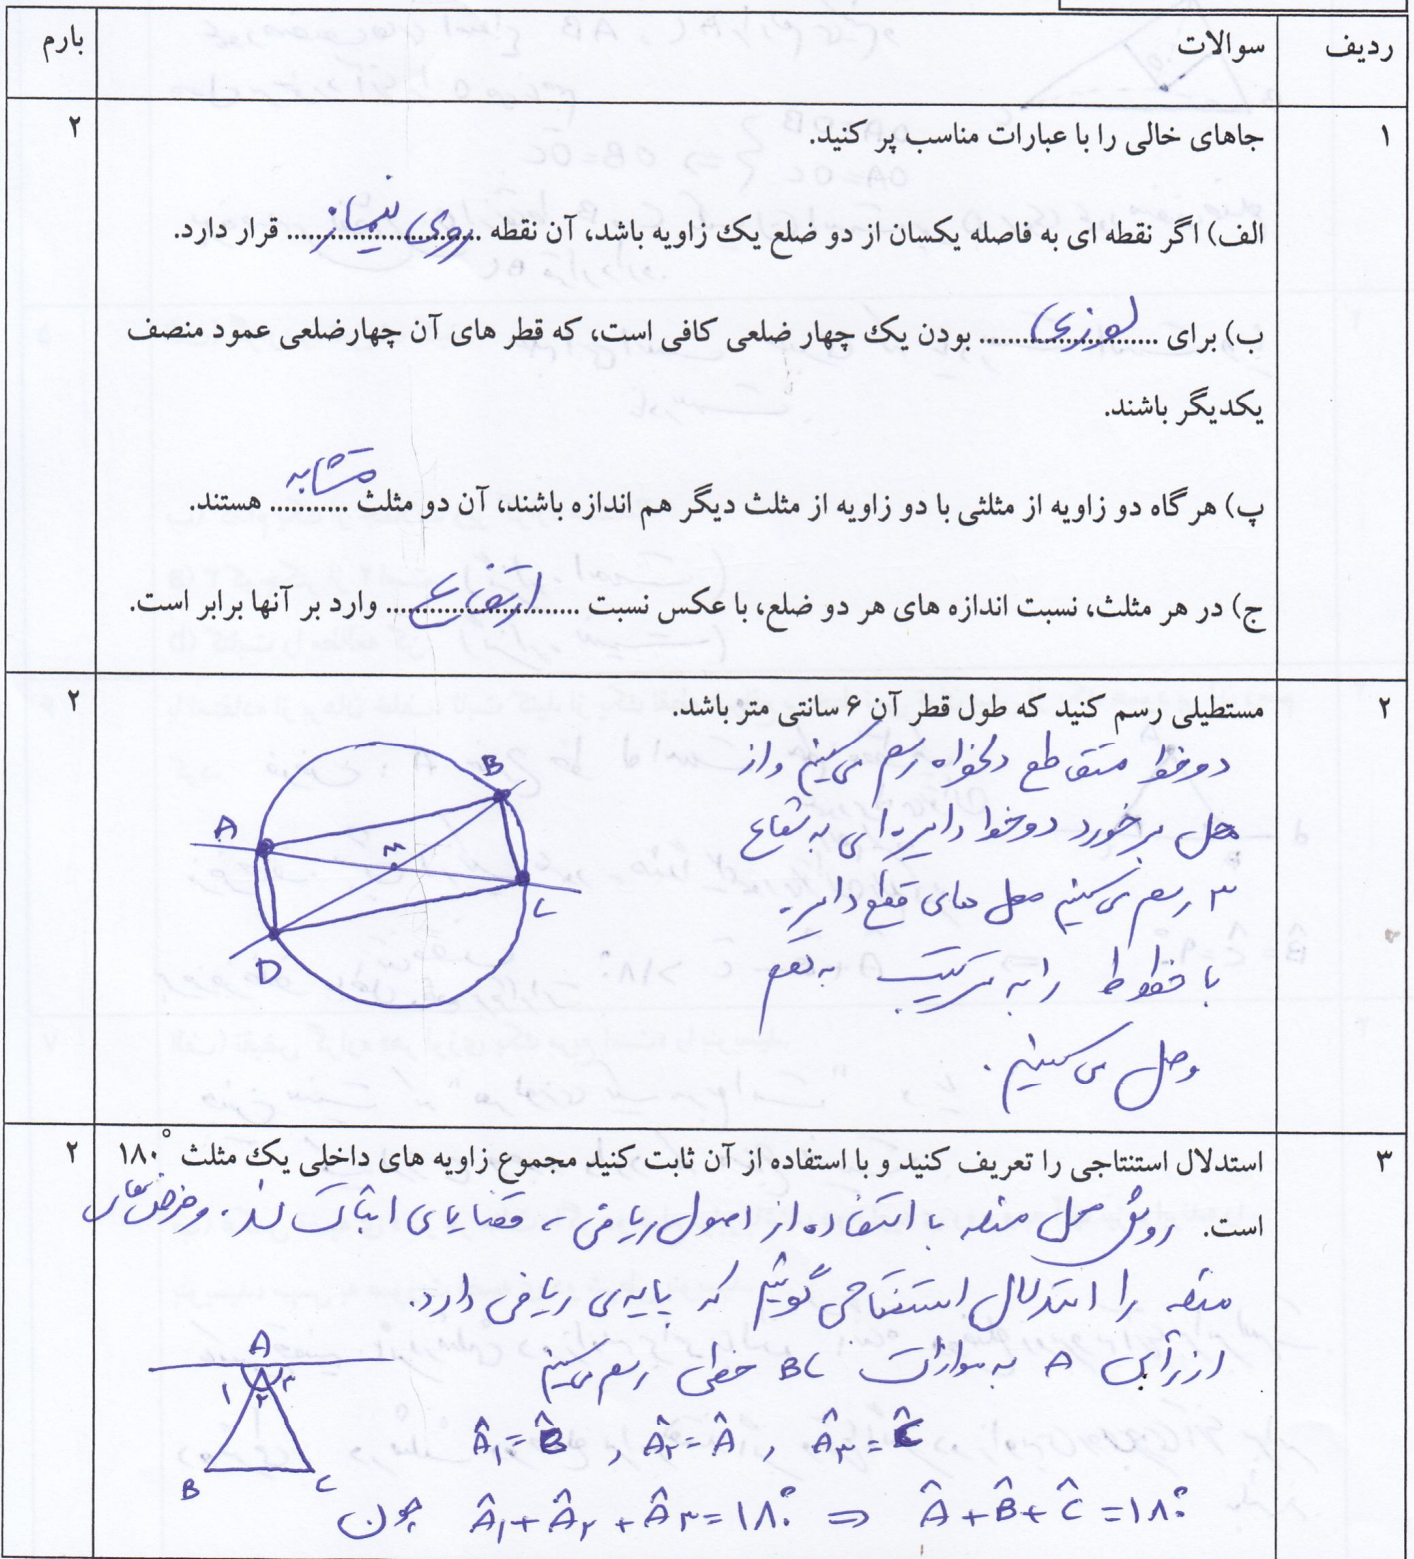 ردیف سوالات بارم
۱ جاهای خالی را با عبارات مناسب پر کنید. ۲
الف) اگر نقطه ای به فاصله یکسان از دو ضلع یک زاویه باشد، آن نقطه روی نیمساز قرار دارد.
ب) برای لوزی بودن یک چهار ضلعی کافی است، که قطر های آن چهارضلعی عمود منصف
یکدیگر باشند.
پ) هر گاه دو زاویه از مثلثی با دو زاویه از مثلث دیگر هم اندازه باشند، آن دو مثلث متشابه هستند.
ج) در هر مثلث، نسبت اندازه های هر دو ضلع، با عکس نسبت ارتفاع وارد بر آنها برابر است.
۲ مستطیلی رسم کنید که طول قطر آن ۶ سانتی متر باشد. ۲
دو خط متقاطع دلخواه رسم می‌کنیم و از
محل برخورد دو خط دایره ای به شعاع
۳ رسم می‌کنیم محل های قطع دایره
با خطوط را به ترتیب به هم
وصل می کنیم.
A B ۳ C D
۳ استدلال استنتاجی را تعریف کنید و با استفاده از آن ثابت کنید مجموع زاویه های داخلی یک مثلث ۱۸۰° ۲
است. روش حل مسئله با استفاده از اصول ریاضی، قضایای اثبات شده و فرض های
مسئله را استدلال استنتاجی گوئیم که پایه‌ی ریاضی دارد.
از رأس A به موازات BC خطی رسم می‌کنیم
A ۱ ۲ ۳ B C
Â۱ = B̂ , Â۲ = Â , Â۳ = Ĉ
چون Â۱ + Â۲ + Â۳ = ۱۸۰° ⇒ Â + B̂ + Ĉ = ۱۸۰°